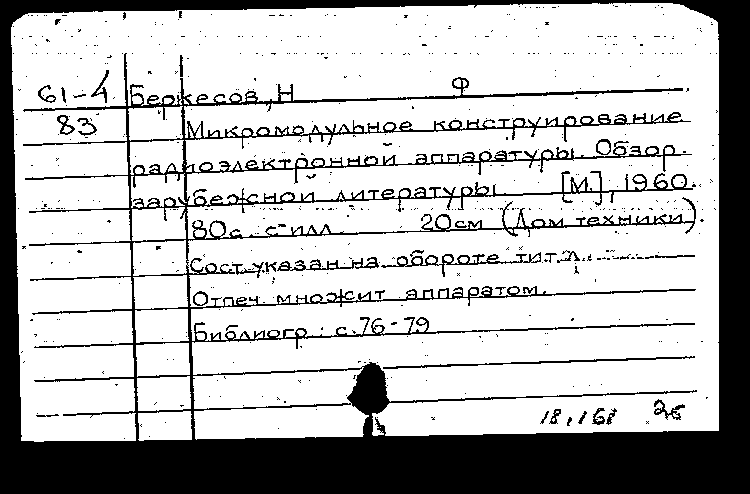 61-4 Беркесов, Н Ф
83 Микромодульное конструирование
радиоэлектронной аппаратуры. Обзор.
зарубежной литературы. [М.], 1960.
80с. с илл. 20см (Дом техники).
Сост. указан на обороте тит. л.
Отпеч. множит аппаратом.
Библиогр: с.76-79
18,161